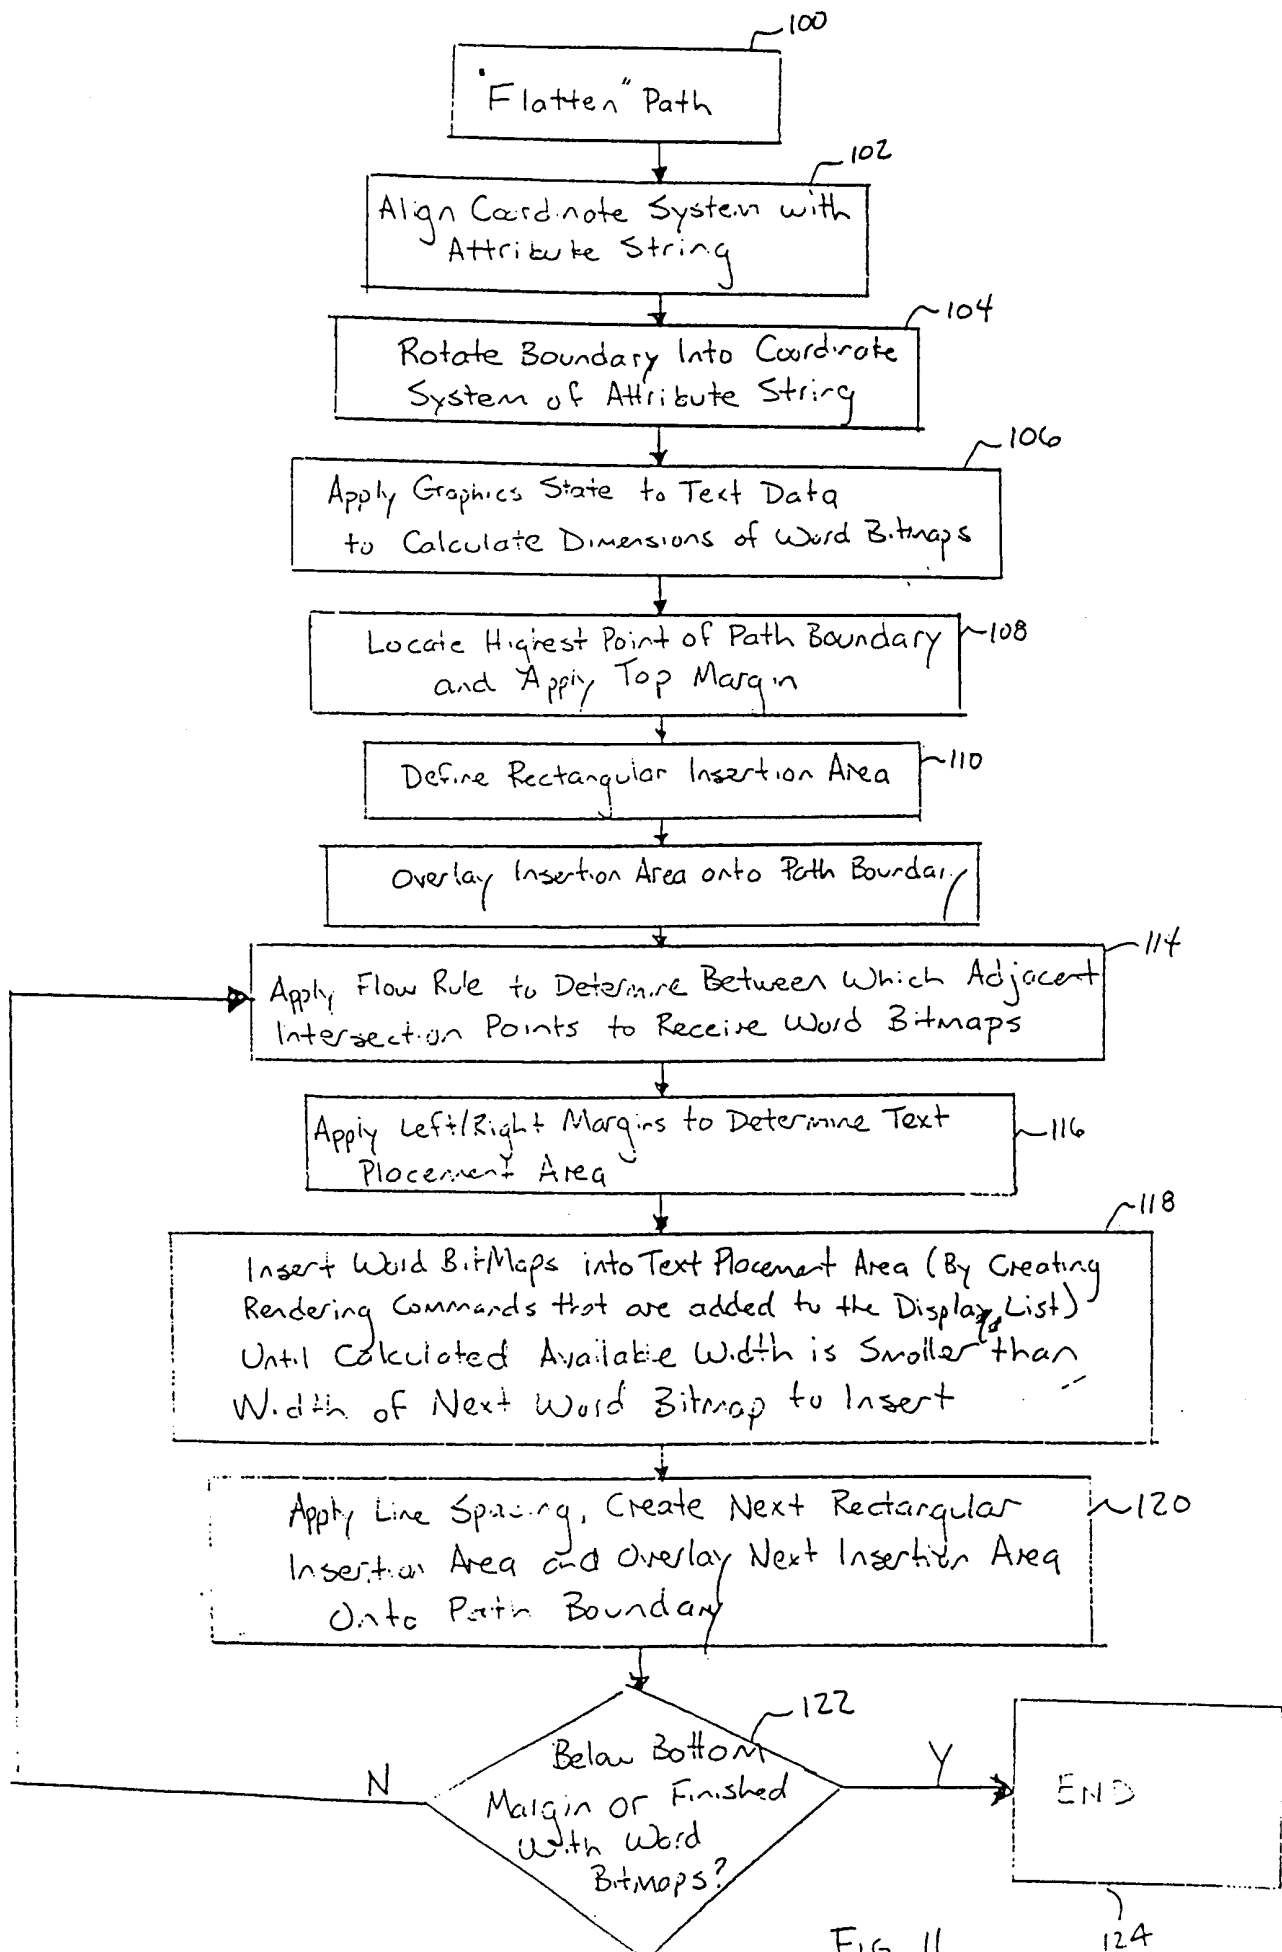 100
"Flatten" Path
102
Align Coordinate System with
Attribute String
104
Rotate Boundary Into Coordinate
System of Attribute String
106
Apply Graphics State to Text Data
to Calculate Dimensions of Word Bitmaps
Locate Highest Point of Path Boundary
108
and Apply Top Margin
Define Rectangular Insertion Area
110
Overlay Insertion Area onto Path Boundary
114
Apply Flow Rule to Determine Between Which Adjacent
Intersection Points to Receive Word Bitmaps
Apply Left/Right Margins to Determine Text
116
Placement Area
118
Insert Word BitMaps into Text Placement Area (By Creating
Rendering Commands that are added to the Display List)
Until Calculated Available Width is Smaller than
Width of Next Word Bitmap to Insert
Apply Line Spacing, Create Next Rectangular
120
Insertion Area and Overlay Next Insertion Area
Onto Path Boundary
122
Below Bottom
Margin or Finished
With Word
Bitmaps?
N
Y
END
124
FIG. 11